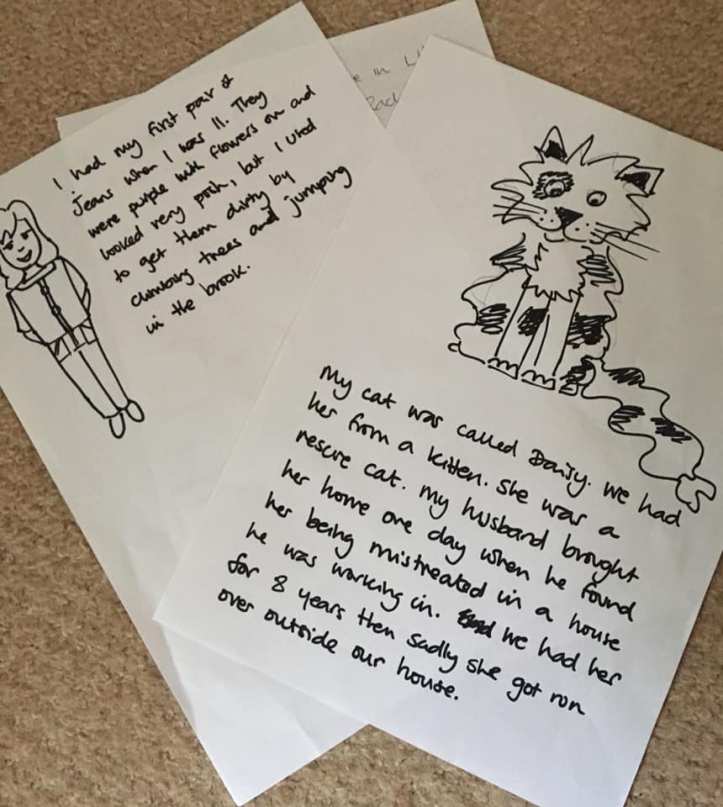 I had my first pair of
Jeans when I was 11. They
were purple with flowers on and
looked very posh, but I used
to get them dirty by
climbing trees and jumping
in the brook.
in
My cat was called Daisy. We had
her from a kitten. She was a
rescue cat. My husband brought
her home one day when he found
her being mistreated in a house
he was working in. We had her
for 8 years then sadly she got run
over outside our house.